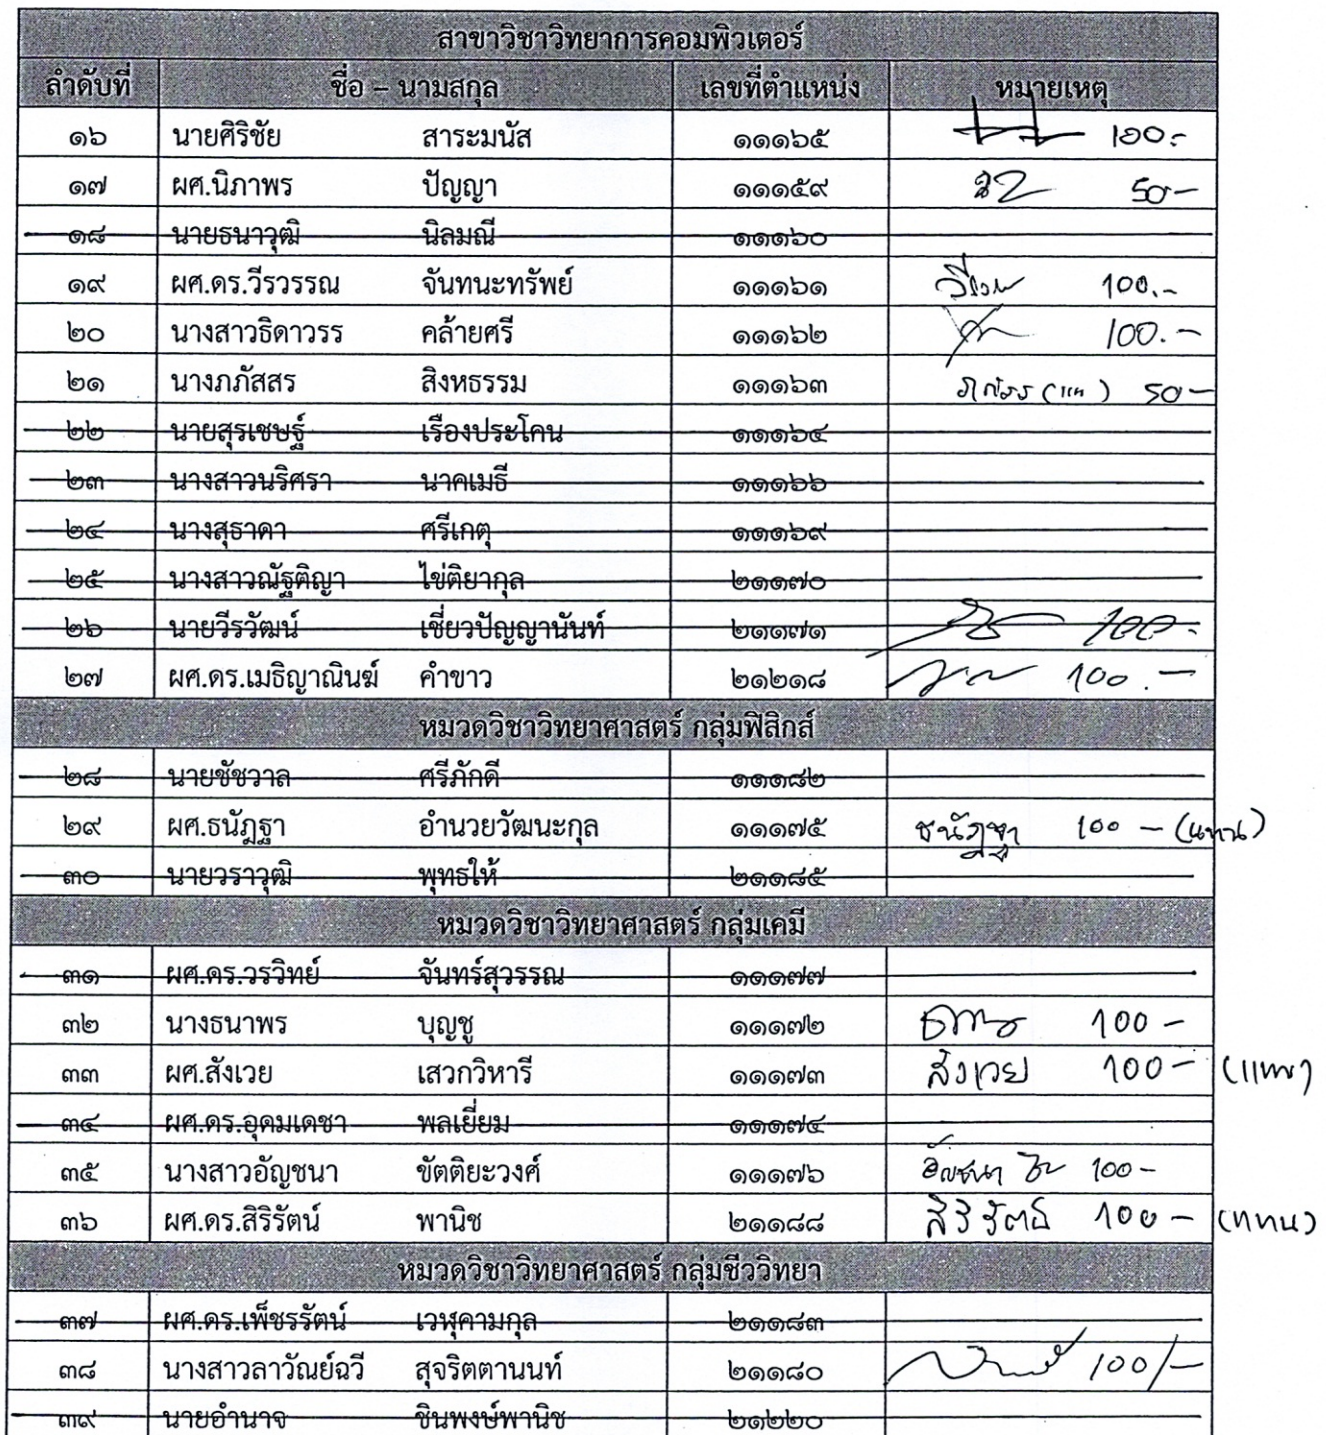 สาขาวิชาวิทยาการคอมพิวเตอร์
ลำดับที่ ชื่อ – นามสกุล เลขที่ตำแหน่ง หมายเหตุ
๑๖ นายศิริชัย สาระมนัส ๑๑๑๖๕ 100.-
๑๗ ผศ.นิภาพร ปัญญา ๑๑๑๕๙ 50-
๑๘ นายธนาวุฒิ นิลมณี ๑๑๑๖๐
๑๙ ผศ.ดร.วีรวรรณ จันทนะทรัพย์ ๑๑๑๖๑ 100.-
๒๐ นางสาวธิดาวรร คล้ายศรี ๑๑๑๖๒ 100.-
๒๑ นางภภัสสร สิงหธรรม ๑๑๑๖๓ 50-
๒๒ นายสุรเชษฐ์ เรืองประโคน ๑๑๑๖๔
๒๓ นางสาวนริศรา นาคเมธี ๑๑๑๖๖
๒๔ นางสุธาดา ศรีเกตุ ๑๑๑๖๙
๒๕ นางสาวณัฐติญา ไข่ติยากุล ๒๑๑๗๐
๒๖ นายวีรวัฒน์ เชี่ยวปัญญานันท์ ๒๑๑๗๑ 100-
๒๗ ผศ.ดร.เมธิญาณินฆ์ คำขาว ๒๑๒๑๘ 100.-
หมวดวิชาวิทยาศาสตร์ กลุ่มฟิสิกส์
๒๘ นายชัชวาล ศรีภักดี ๑๑๑๘๒
๒๙ ผศ.ธนัฏฐา อำนวยวัฒนะกุล ๑๑๑๗๕ ธนัฏฐา 100 - (แทน)
๓๐ นายวราวุฒิ พุทธให้ ๒๑๑๘๕
หมวดวิชาวิทยาศาสตร์ กลุ่มเคมี
๓๑ ผศ.ดร.วรวิทย์ จันทร์สุวรรณ ๑๑๑๗๗
๓๒ นางธนาพร บุญชู ๑๑๑๗๒ 100 -
๓๓ ผศ.สังเวย เสวกวิหารี ๑๑๑๗๓ สังเวย 100 - (แทน)
๓๔ ผศ.ดร.อุดมเดชา พลเยี่ยม ๑๑๑๗๔
๓๕ นางสาวอัญชนา ขัตติยะวงศ์ ๑๑๑๗๖ อัญชนา 100-
๓๖ ผศ.ดร.สิริรัตน์ พานิช ๒๑๑๘๘ สิริรัตน์ 100 - (แทน)
หมวดวิชาวิทยาศาสตร์ กลุ่มชีววิทยา
๓๗ ผศ.ดร.เพ็ชรรัตน์ เวฬุคามกุล ๒๑๑๘๓
๓๘ นางสาวลาวัณย์ฉวี สุจริตตานนท์ ๒๑๑๘๐ 100/-
๓๙ นายอำนาจ ชินพงษ์พานิช ๒๑๒๒๐